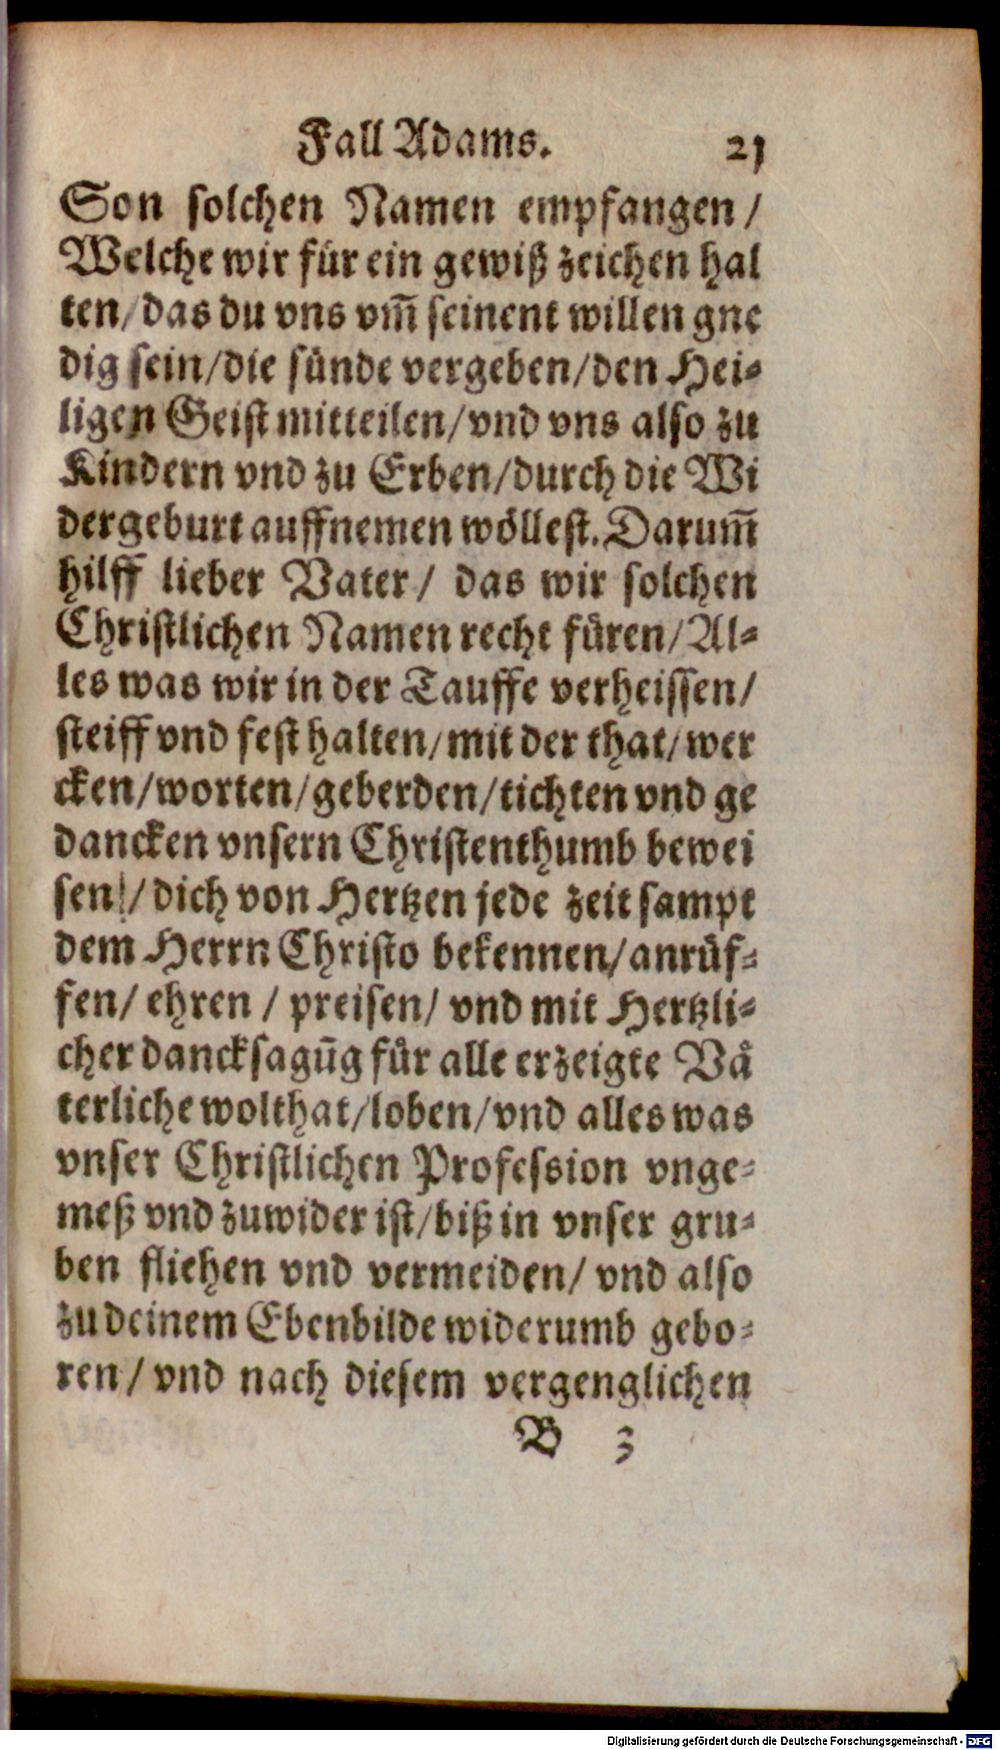 Fall Adams. 21
Son solchen Namen empfangen/
Welche wir für ein gewiß zeichen hal
ten/das du vns vm̃ seinent willen gne
dig sein/die sünde vergeben/den Hei⸗
ligen Geist mitteilen/vnd vns also zu
Kindern vnd zu Erben/durch die Wi
dergeburt auffnemen wöllest. Darum̃
hilff lieber Vater/ das wir solchen
Christlichen Namen recht füren/Al⸗
les was wir in der Tauffe verheissen/
steiff vnd fest halten/mit der that/wer
cken/worten/geberden/tichten vnd ge
dancken vnsern Christenthumb bewei
sen/dich von Hertzen jede zeit sampt
dem Herrn Christo bekennen/anrüf⸗
fen/ ehren / preisen/ vnd mit Hertzli⸗
cher dancksagũg für alle erzeigte Vä
terliche wolthat/loben/vnd alles was
vnser Christlichen Profession vnge⸗
meß vnd zuwider ist/biß in vnser gru⸗
ben fliehen vnd vermeiden/ vnd also
zu deinem Ebenbilde widerumb gebo⸗
ren/ vnd nach diesem vergenglichen
B 3
Digitalisierung gefördert durch die Deutsche Forschungsgemeinschaft - DFG